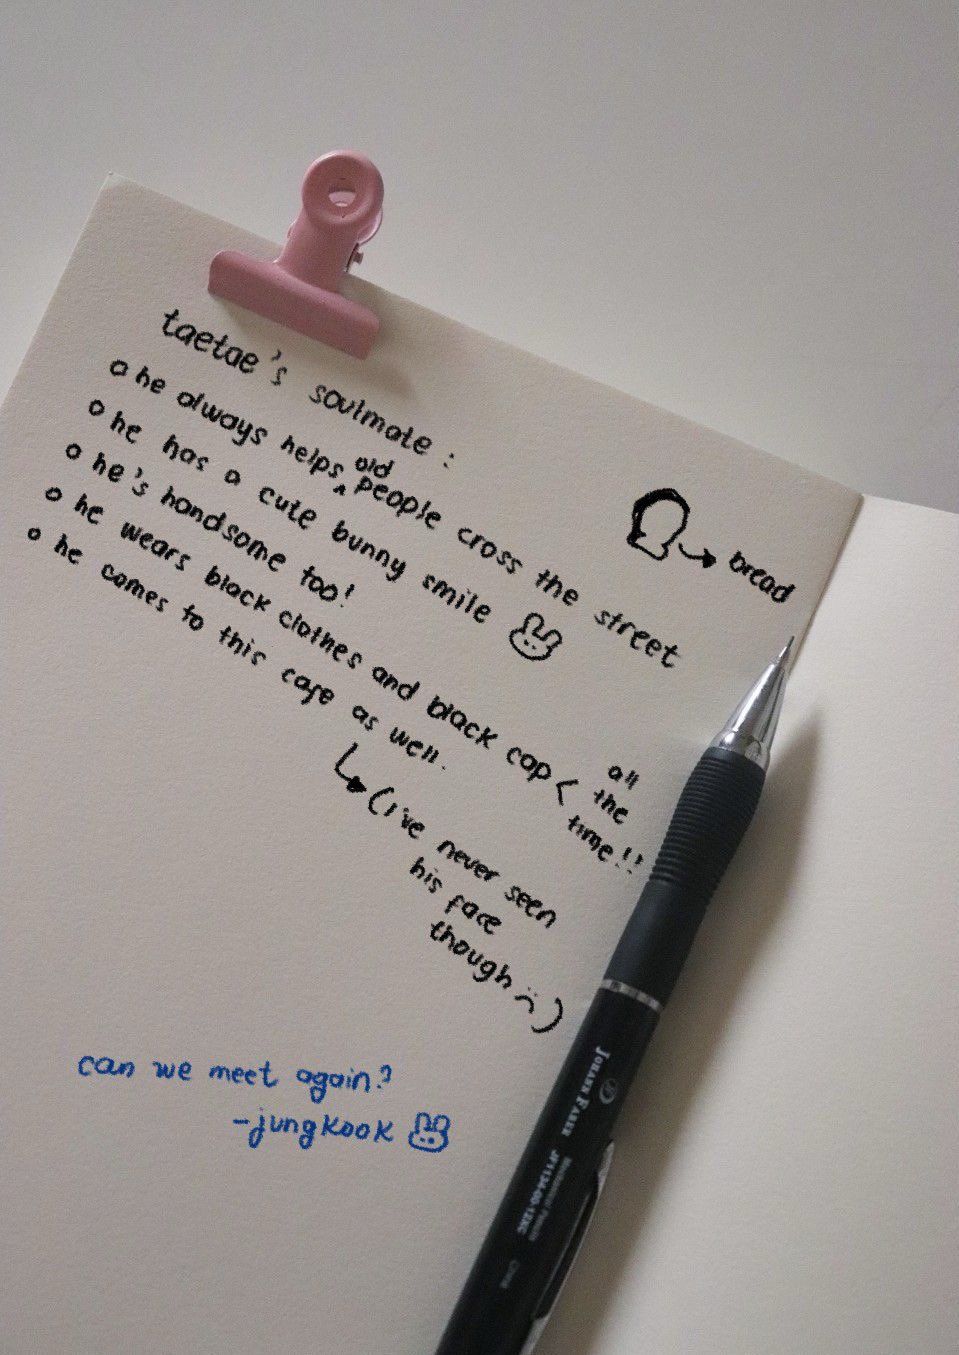 taetae's soulmate :
o he always helps ^ old people cross the street
o he has a cute bunny smile
o he's handsome too!
o he wears black clothes and black cap < all
the
time!!
o he comes to this cafe as well.
(i've never seen
his face
though :()
bread
can we meet again?
-jungkook
JOHANN FABER
Mechanical Pencil